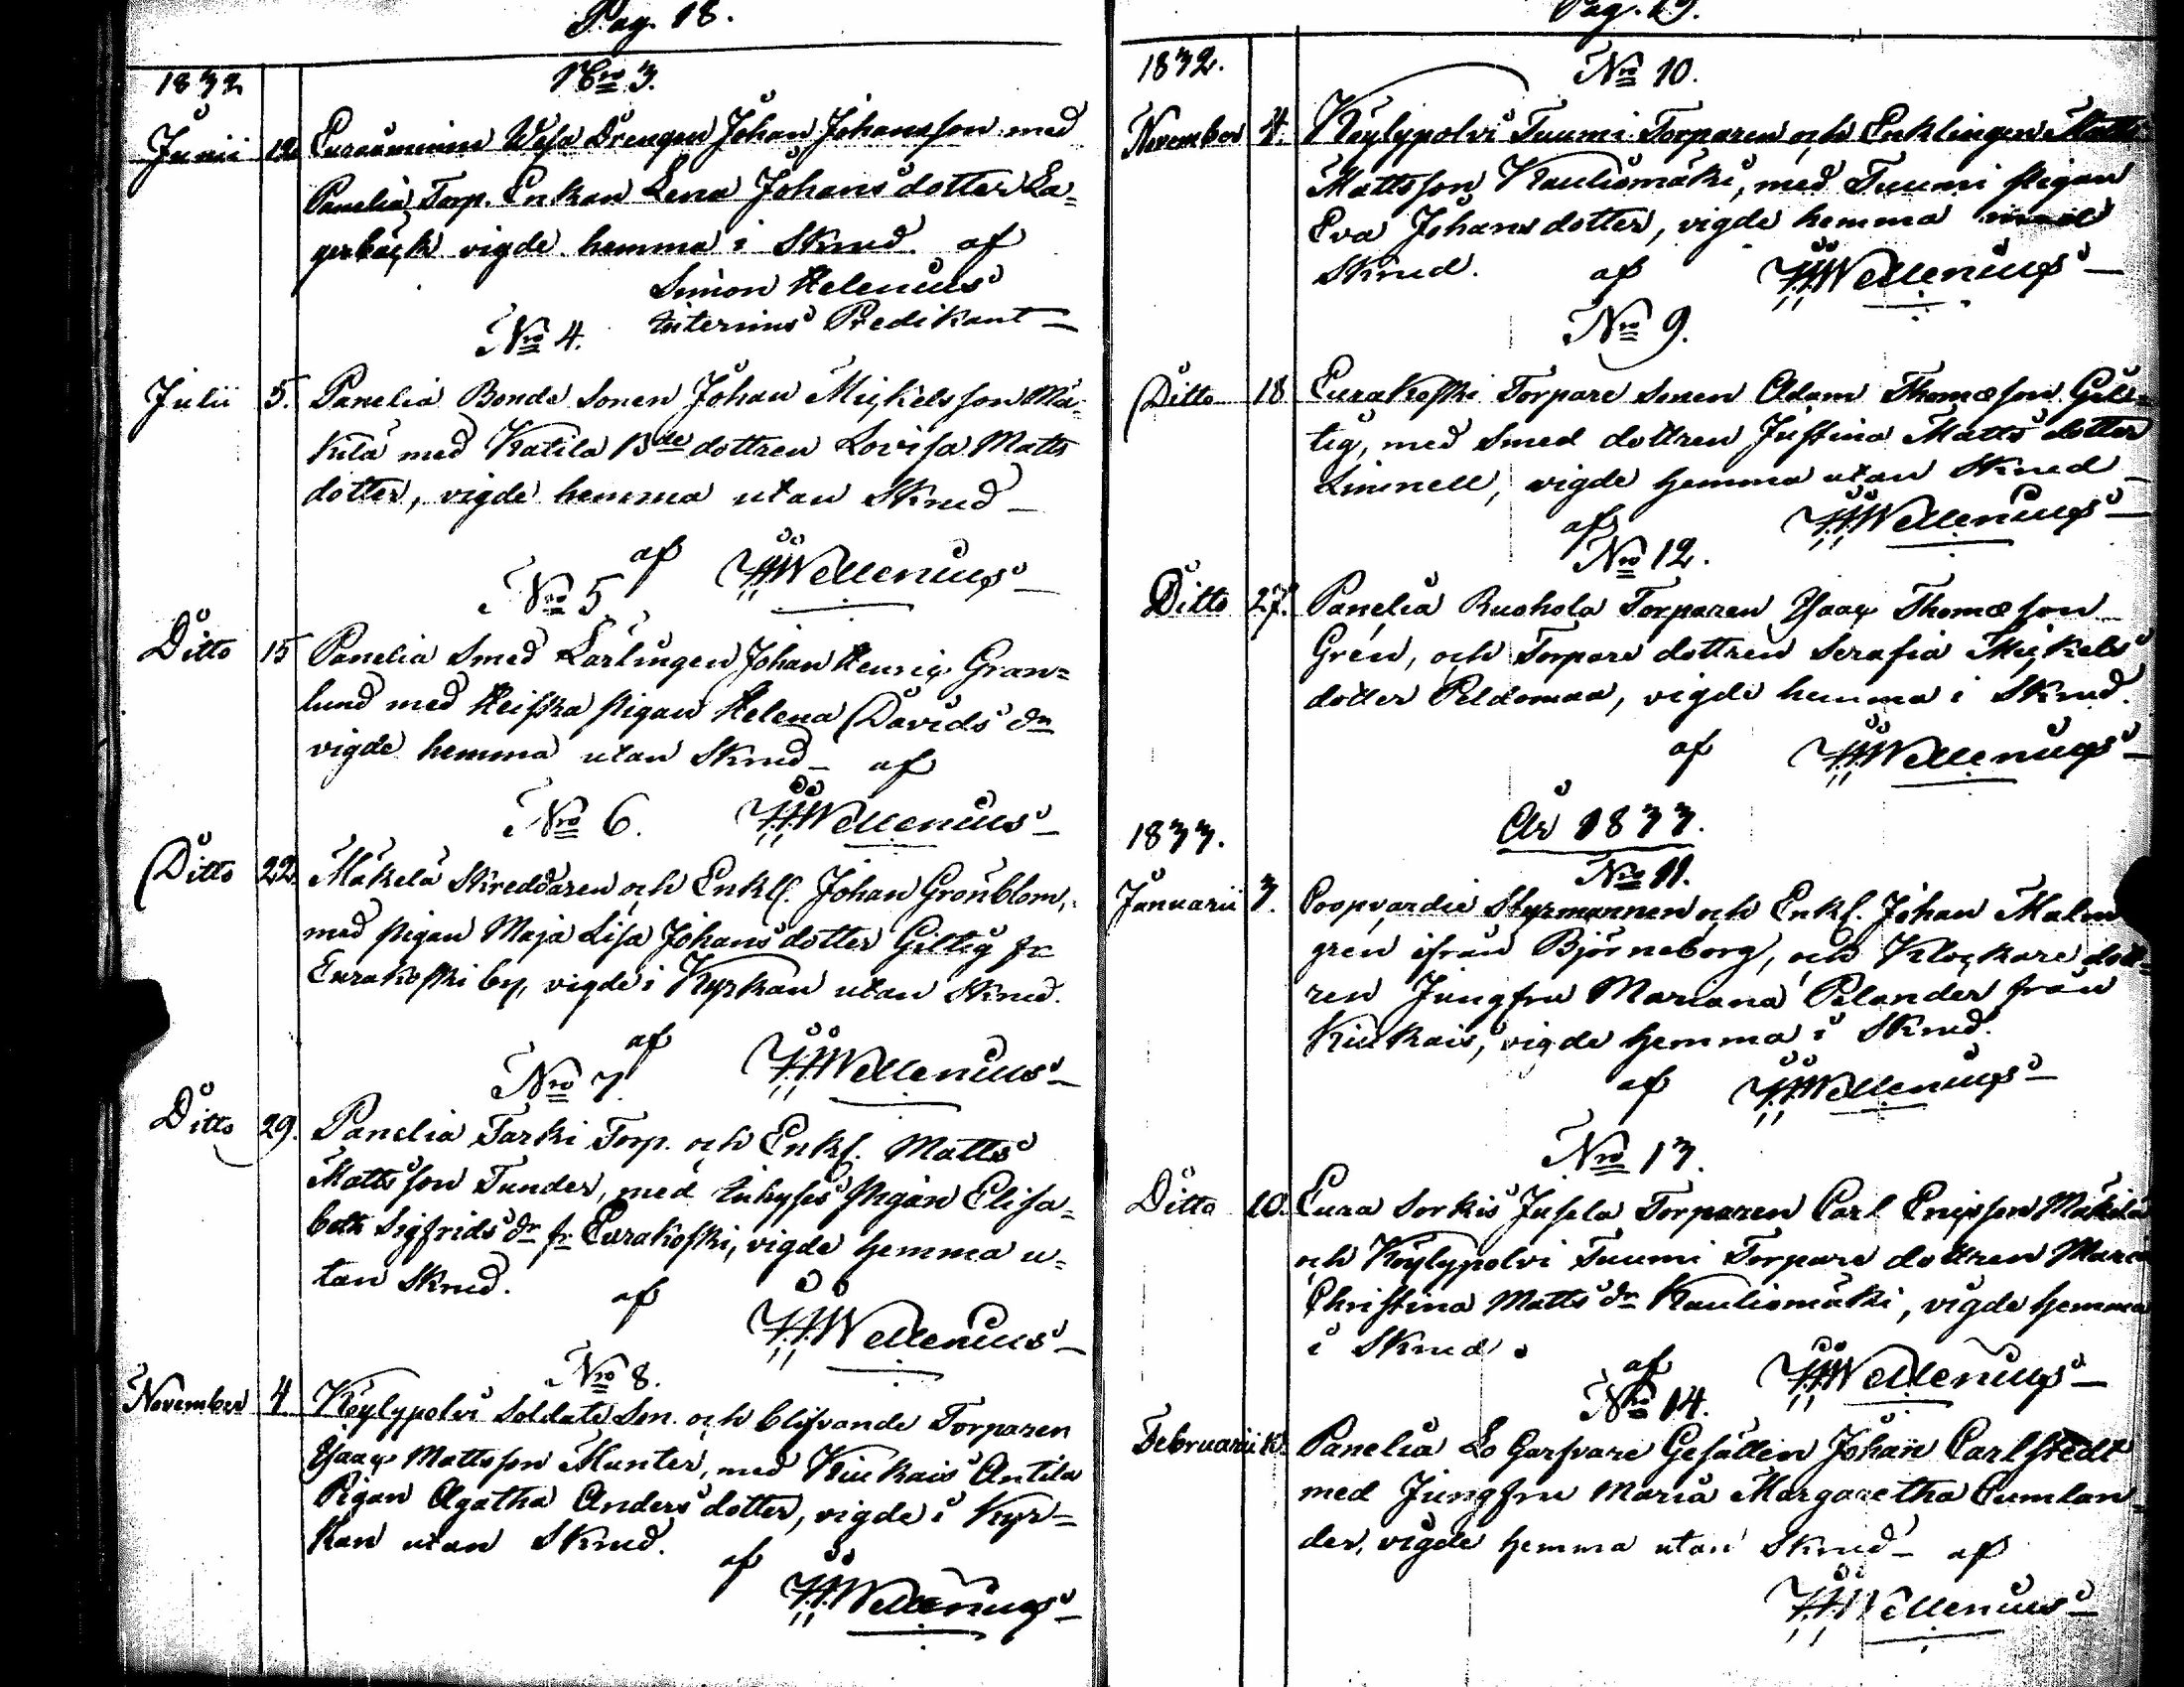 Pag. 18.
1832
Nro 3.
Junii 12. Euraåminne Wesa Drengen Johan Johansson med
Panelia Torp. Enkan Lena Johansdotter La=
gerbäck vigde hemma i Skrud af
Simon Helenius
interims Predikant
Nro 4.
Julii 5. Panelia Bonde Sonen Johan Mickelsson Mä=
kilä med Katila Bde dottren Lovisa Matts
dotter, vigde hemma utan Skrud
af H.H. Wellenius
Nro 5
Ditto 15 Panelia Smed Lärlingen Johan Henric Gran=
lund med Heiska pigan Helena Davids dr
vigde hemma utan Skrud af
H.H. Wellenius
Nro 6.
Ditto 22. Mäkelä Skreddaren och Enkl. Johan Grönblom,
med pigan Maja Lisa Johansdotter Giltig fr
Eurakoski by, vigde i Kyrkan utan Skrud.
af H.H. Wellenius
Nro 7.
Ditto 29. Panelia Tarki Torp. och Enkl. Matts
Mattsson Tunder, med Inhyses Pigan Elisa=
beth Sigfrids dr fr Eurakoski, vigde hemma u=
tan Skrud. af
H.H. Wellenius
Nro 8.
November 4 Köylypolvi Soldate Son och blifvande Torparen
Isaac Mattsson Munter, med Kiukais Antila
Pigan Agatha Andersdotter, vigde i Kyr=
kan utan Skrud. af
H.H. Wellenius
Pag. 19.
1832.
Nro 10.
November 4. Köylypolvi Tuumi Torparen och Enklingen Matts
Mattsson Kauliomäki, med Tuumi pigan
Eva Johansdotter, vigde hemma
Skrud. af H.H. Wellenius
Nro 9.
Ditto 18 Eurakoski Torpare Sonen Adam Thomæson Gil=
tig, med Smed dottren Justina Matts dotter
Linnell, vigde hemma utan Skrud
af H.H. Wellenius
Nro 12.
Ditto 27. Panelia Ruohola Torparen Isaac Thomæson
Grén, och Torpare dottren Serafia Mickels
dotter Peldomaa, vigde hemma i Skrud.
af H.H. Wellenius
År 1833.
1833.
Nro 11.
Januarii 3. Coopvardie Styrmannen och Enkl. Johan Malm
gren ifrån Björneborg, och Klockare dott=
ren Jungfru Mariana Polander från
Kiukais, vigde hemma i Skrud.
af H.H. Wellenius
Nro 13.
Ditto 10. Eura Sorkis Jusela Torparen Carl Ericsson Mäkilä
och Köylypolvi Tuumi Torpare dottren Maria
Christina Matts dr Kauliomäki, vigde hemma
i Skrud.
af H.H. Wellenius
Nro 14.
Februarii Panelia Lo Garfvare Gesällen Johan Carlstedt
med Jungfru Maria Margaretha Cumlan
der, vigde hemma utan Skrud af
H.H. Wellenius